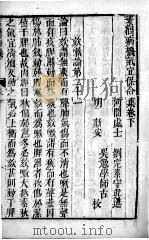 素問病機氣宜保命集卷下
河間處士 劉完素守真 述
明 新安 吳勉學師古 校
欬嗽論第二十一
論曰欬謂無痰而有聲肺氣傷而不清也嗽是無聲
而有痰脾濕動而為痰也欬嗽謂有痰而有聲蓋因
傷於肺氣動於脾濕欬而為嗽也脾濕者秋傷於濕
積於脾也故內經曰秋傷於濕冬必欬嗽大抵素秋
之氣宜清肅反動之氣必上衝而為欬甚則動於脾